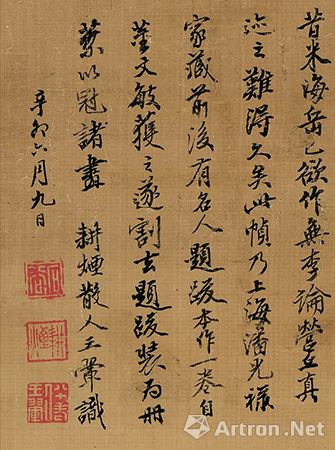 昔米海岳已欲作無李論營丘真
迹之難得久矣此幀乃上海潘光祿
家藏前後有名人題跋本作一卷自
董文敏獲之遂割去題跋裝為冊
葉以冠諸畫 耕煙散人王翬識
辛卯六月九日
Artron.Net